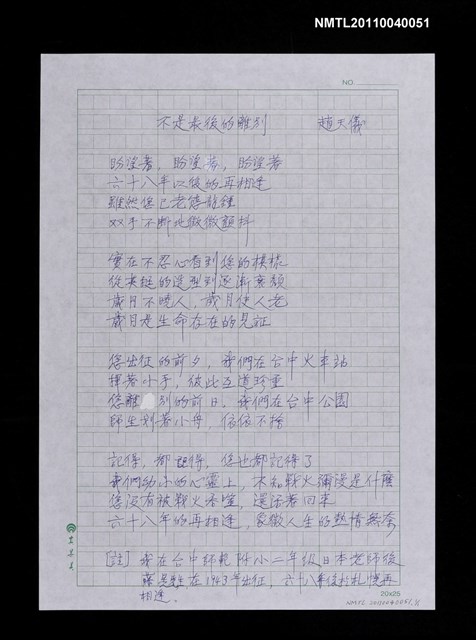 NMTL20110040051
NO.
不是最後的離別 趙天儀
盼望著，盼望著，盼望著
六十八年以後的再相逢
雖然您已老態龍鍾
双手不断地微微顫抖
實在不忍心看到您的模樣
從英挺的造型到逐漸衰頹
歲月不曉人，歲月使人老
歲月是生命存在的見証
您出征的前夕，我們在台中火車站
揮著小手，彼此互道珍重
您離別的前日，我們在台中公園
師生划著小舟，依依不捨
記得，都記得，您也都記得了
我們幼小的心靈上，不知戰火瀰漫是什麼
您沒有被戰火吞噬，還活著回來
六十八年的再相逢，象徵人生的熱情無奈
[註] 我在台中師範附小二年級日本老師後
在1943年出征，六十八年後於札幌再
相逢。
20x25
NMTL20110040051